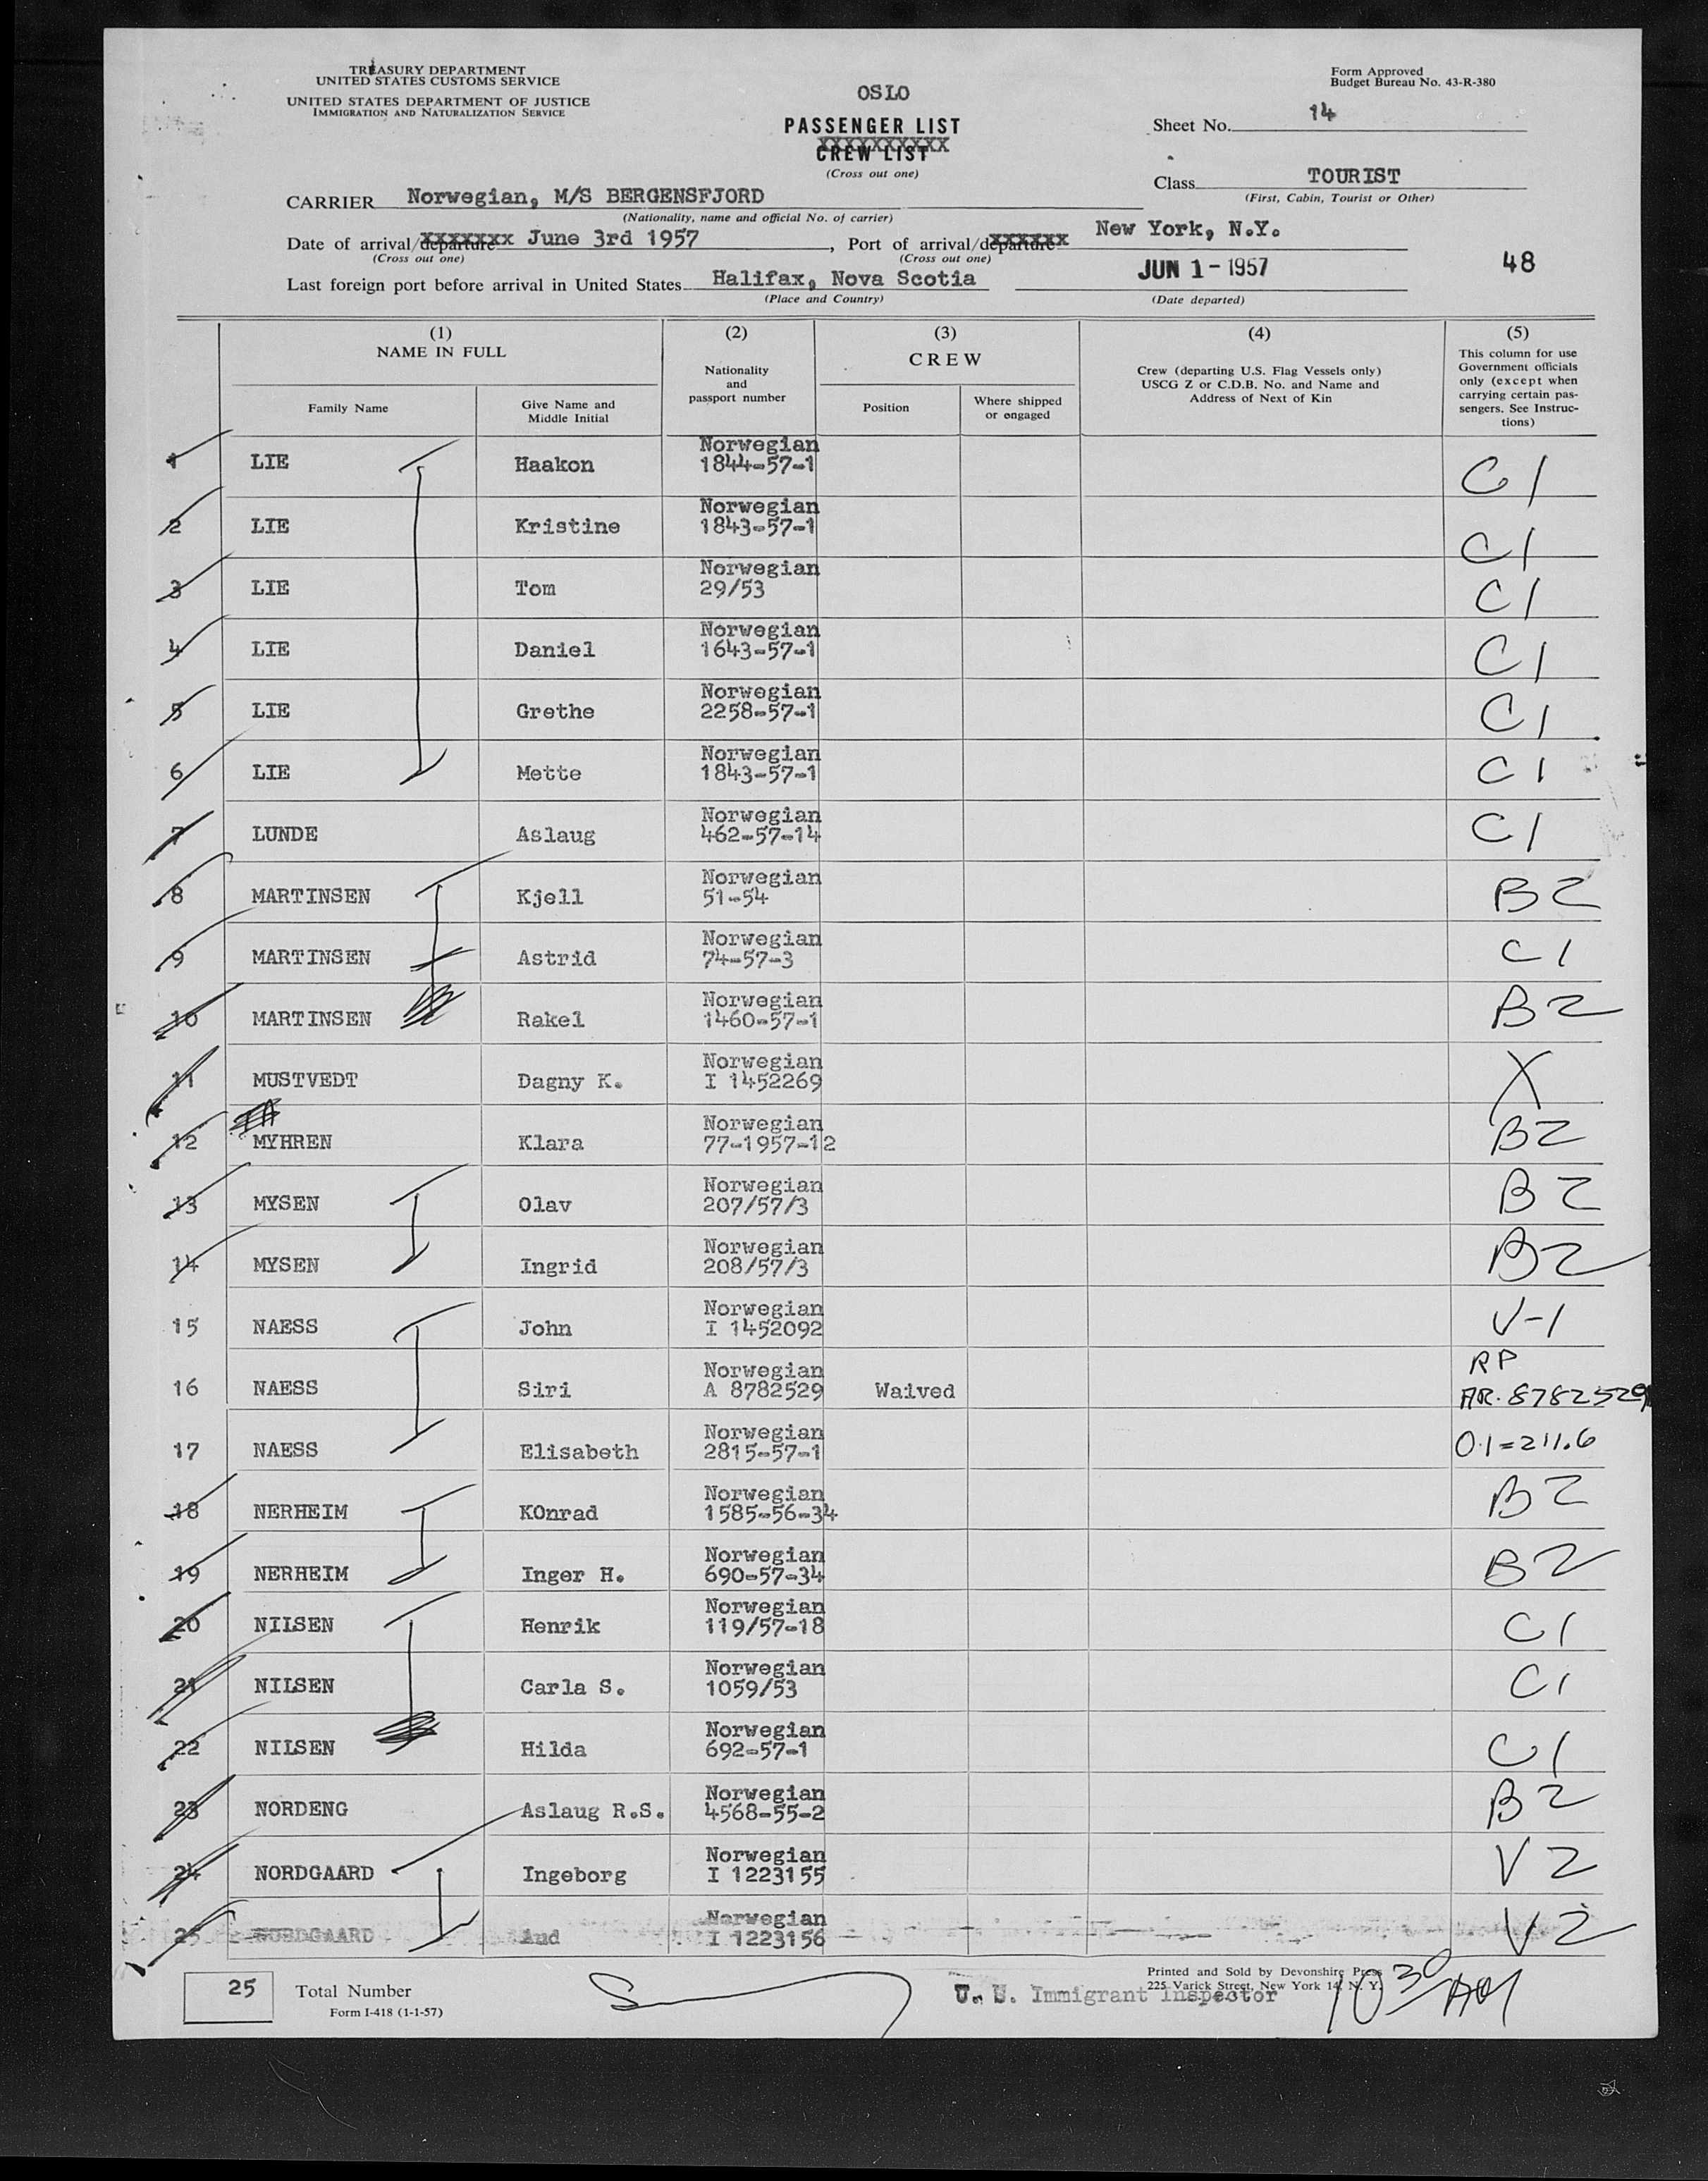 TREASURY DEPARTMENT
UNITED STATES CUSTOMS SERVICE
UNITED STATES DEPARTMENT OF JUSTICE
IMMIGRATION AND NATURALIZATION SERVICE
OSLO
PASSENGER LIST
XXXXXXXXXX
CREW LIST
(Cross out one)
Form Approved
Budget Bureau No. 43-R-380
Sheet No. 14
Class TOURIST
(First, Cabin, Tourist or Other)
CARRIER Norwegian, M/S BERGENSFJORD
(Nationality, name and official No. of carrier)
Date of arrival/departure June 3rd 1957, Port of arrival/departure New York, N.Y.
(Cross out one) (Cross out one)
Last foreign port before arrival in United States Halifax, Nova Scotia JUN 1 - 1957 48
(Place and Country) (Date departed)
(1) (2) (3) (4) (5)
NAME IN FULL
Family Name
Give Name and
Middle Initial
Nationality
and
passport number
CREW
Position
Where shipped
or engaged
Crew (departing U.S. Flag Vessels only)
USCG Z or C.D.B. No. and Name and
Address of Next of Kin
This column for use
Government officials
only (except when
carrying certain pas-
sengers. See Instruc-
tions)
Norwegian
1 LIE Haakon 1844-57-1 C1
Norwegian
2 LIE Kristine 1843-57-1 C1
Norwegian
3 LIE Tom 29/53 C1
Norwegian
4 LIE Daniel 1643-57-1 C1
Norwegian
5 LIE Grethe 2258-57-1 C1
Norwegian
6 LIE Mette 1843-57-1 C1
Norwegian
7 LUNDE Aslaug 462-57-14 C1
Norwegian
8 MARTINSEN Kjell 51-54 B2
Norwegian
9 MARTINSEN Astrid 74-57-3 C1
Norwegian
10 MARTINSEN Rakel 1460-57-1 B2
Norwegian
11 MUSTVEDT Dagny K. I 1452269 X
Norwegian
12 MYHREN Klara 77-1957-12 B2
Norwegian
13 MYSEN Olav 207/57/3 B2
Norwegian
14 MYSEN Ingrid 208/57/3 B2
Norwegian
15 NAESS John I 1452092 V-1
Norwegian RP
16 NAESS Siri A 8782529 Waived AR. 8782529
Norwegian
17 NAESS Elisabeth 2815-57-1 O.1=211.6
Norwegian
18 NERHEIM KOnrad 1585-56-34 B2
Norwegian
19 NERHEIM Inger H. 690-57-34 B2
Norwegian
20 NILSEN Henrik 119/57-18 C1
Norwegian
21 NILSEN Carla S. 1059/53 C1
Norwegian
22 NILSEN Hilda 692-57-1 C1
Norwegian
23 NORDENG Aslaug R.S. 4568-55-2 B2
Norwegian
24 NORDGAARD Ingeborg I 1223155 V2
Norwegian
25 NORDGAARD Aud I 1223156 V2
25 Total Number
Form I-418 (1-1-57)
Printed and Sold by Devonshire Press
225 Varick Street, New York 14, N. Y.
Immigrant Inspector
10 30 AM